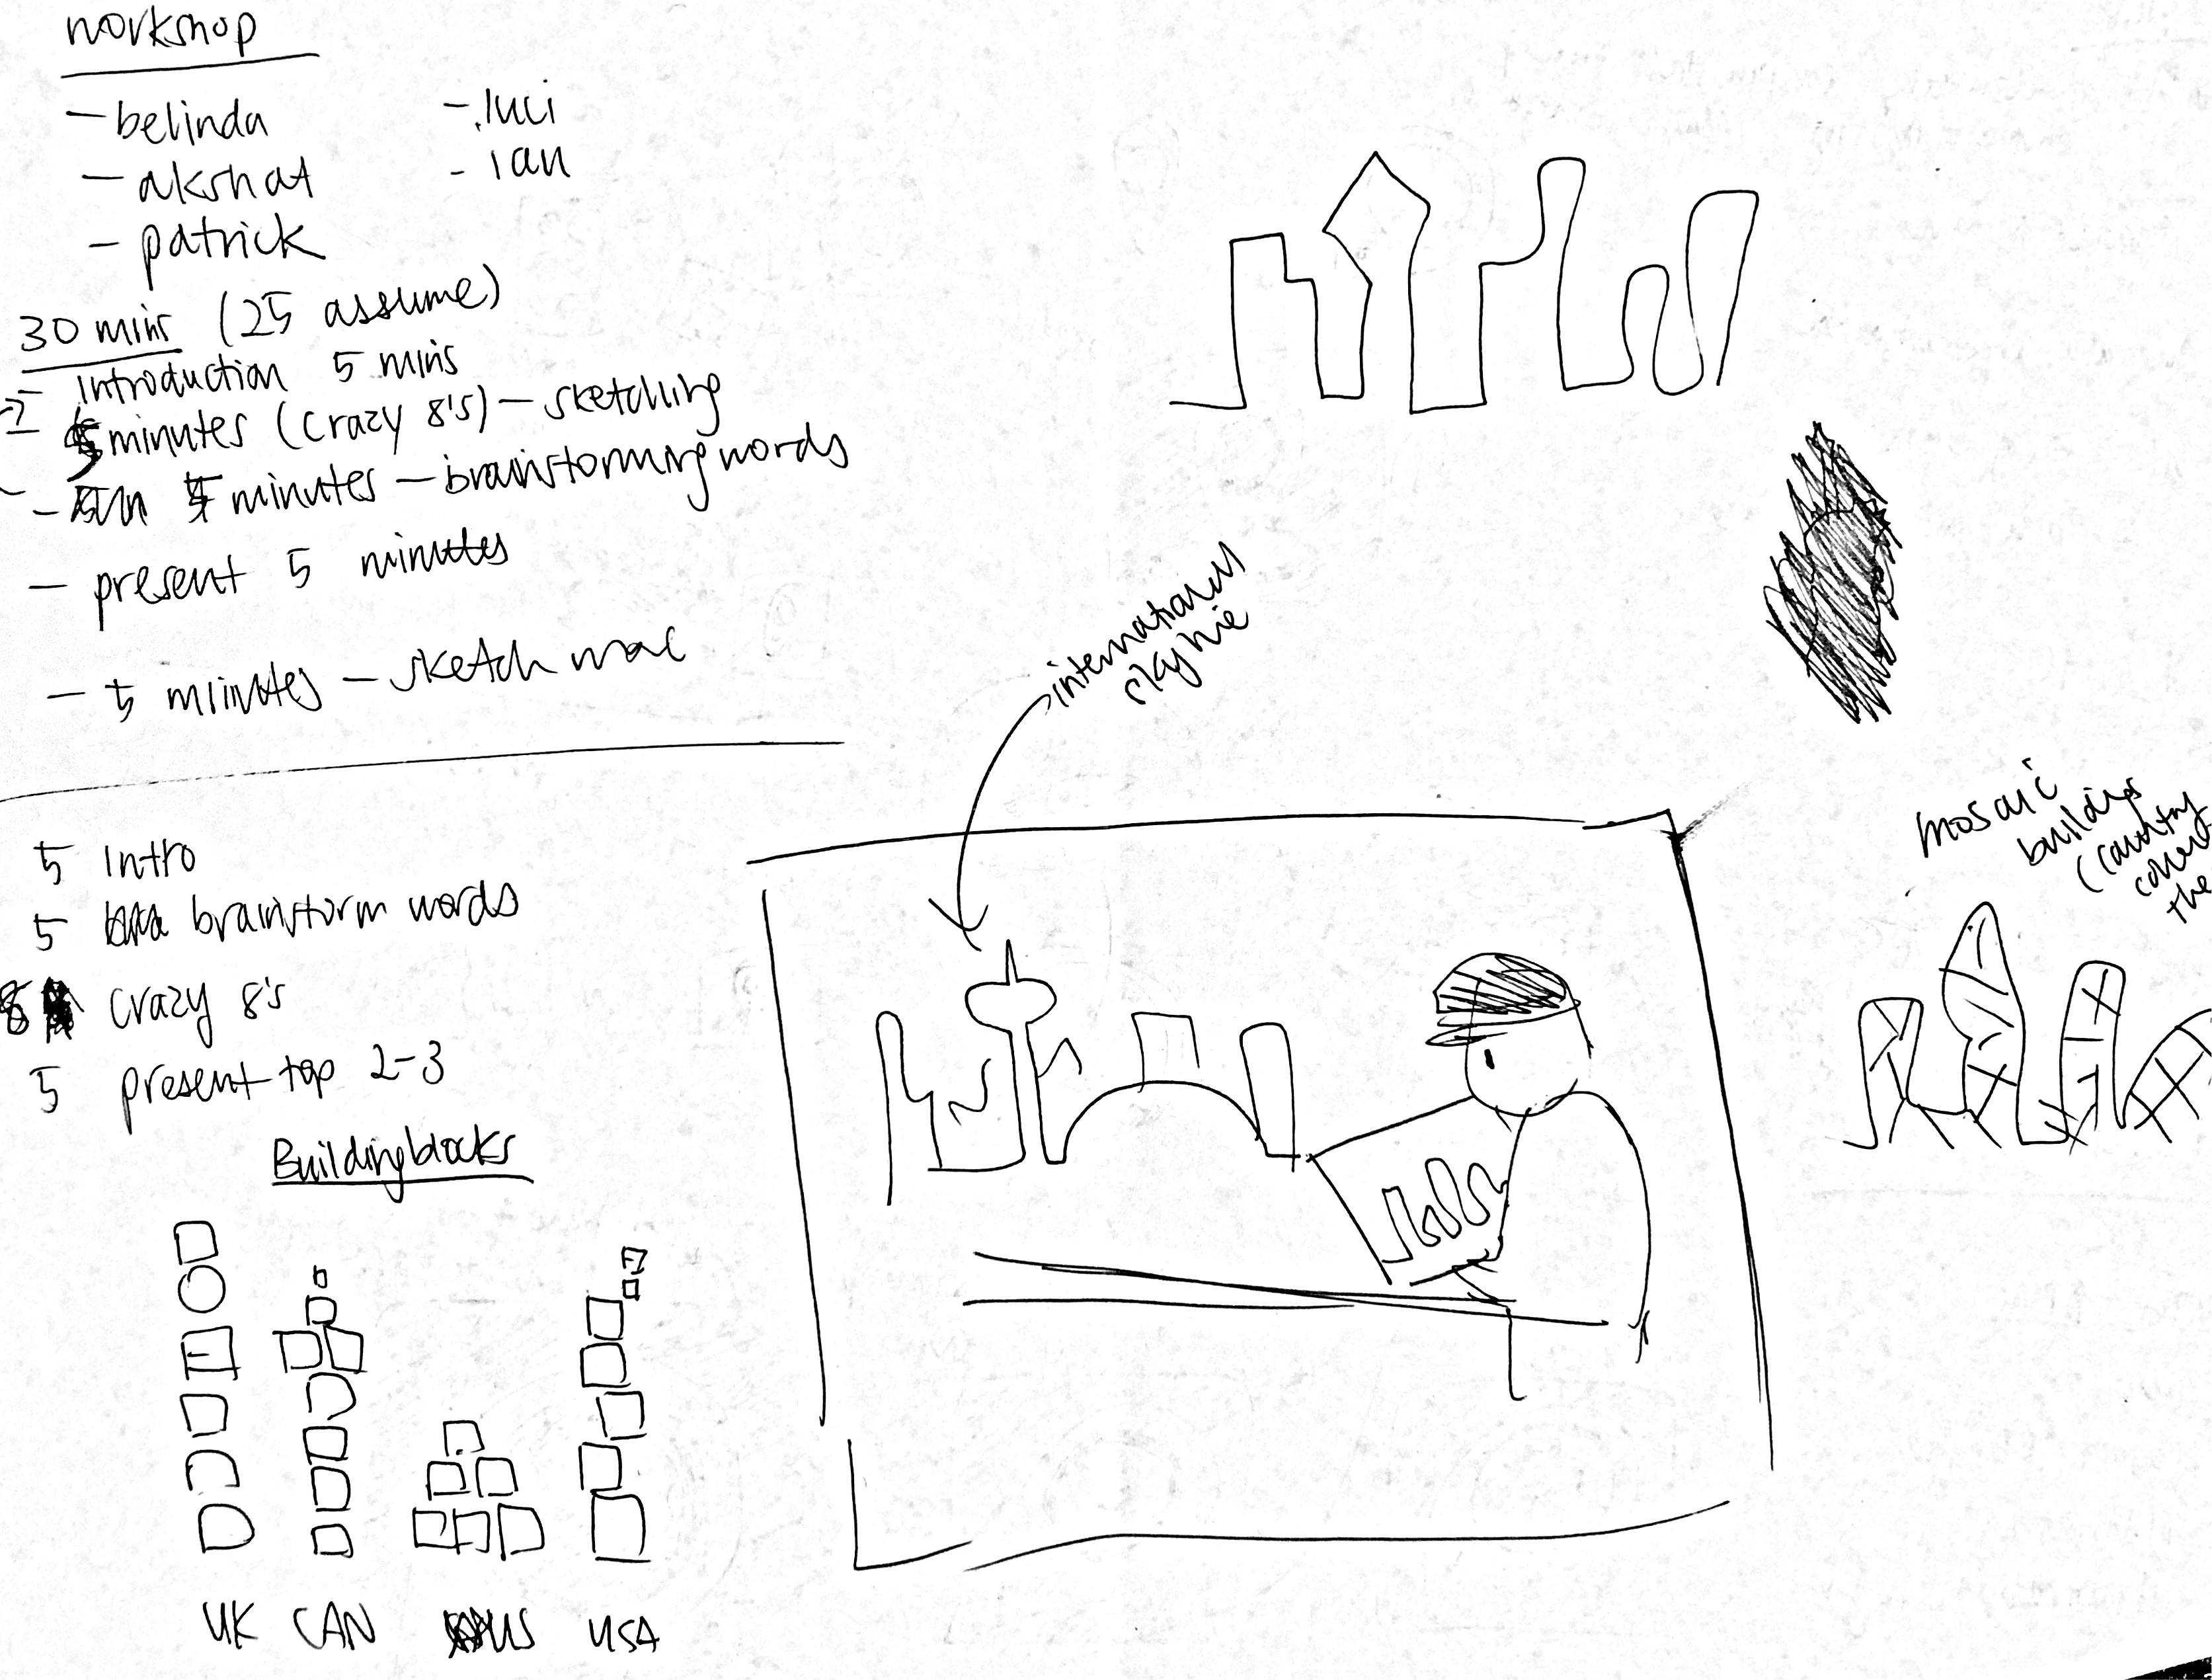 workshop
- belinda
- akshat
- patrick
- luci
- ian
30 mins (25 assume)
- Introduction 5 mins
- 5 minutes (crazy 8's) - sketching
- 5 minutes - brainstorming words
- present 5 minutes
- 5 minutes - sketch
5 Intro
5 brainstorm words
8 crazy 8's
5 present top 2-3
Building blocks
UK CAN AUS USA
international
mosaic
buildings
(country
the